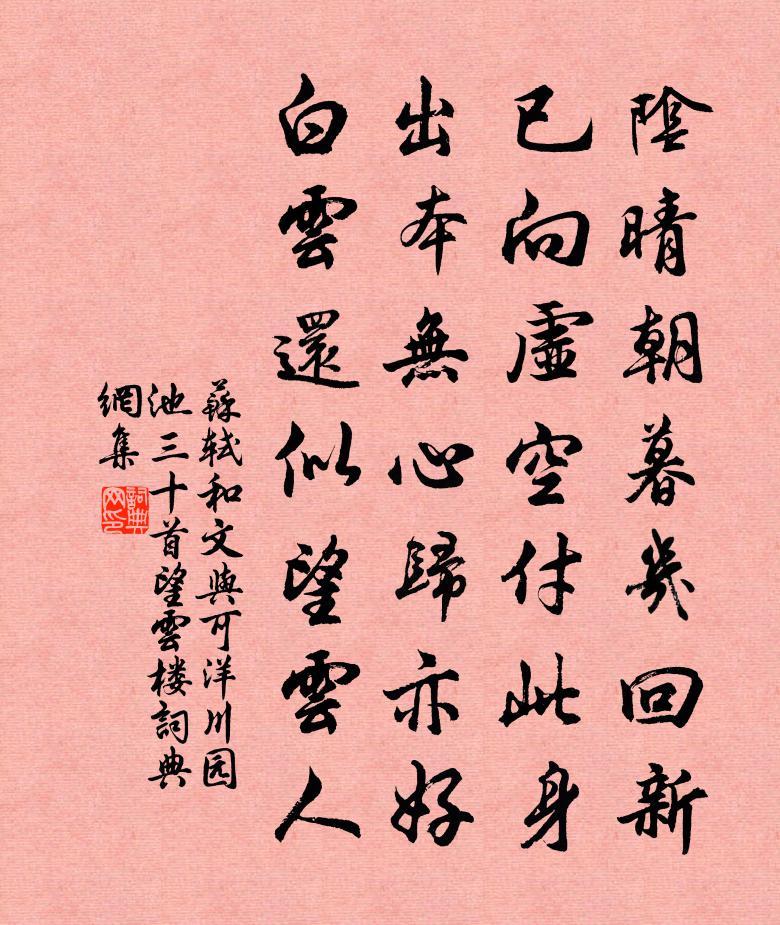 陰晴朝暮幾回新
已向虛空付此身
出本無心歸亦好
白雲還似望雲人
蘇軾和文與可洋川园
池三十首望雲楼詞典
網集
詞典
网印